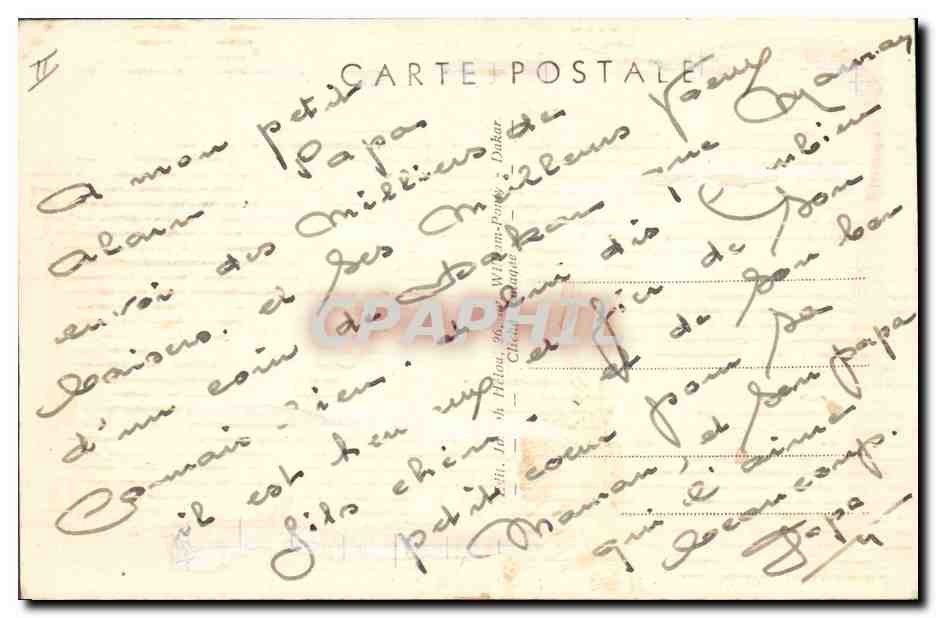 II
CARTE POSTALE
A mon petit
Alain. Papa
envoi des Milliers de
baisers. et ses Meilleurs Vœux
d'un coin de Dakar que Maman
Connait bien. et lui dis Combien
il est heureux et fier de Son
fils chéri. et de Son bon
petit cœur pour Sa
Maman, et Son papa
qui l'aime
beaucoup.
Papa
Edit. h Hélou, 96, William-Ponty - Dakar
Cliché
CPAPHIL